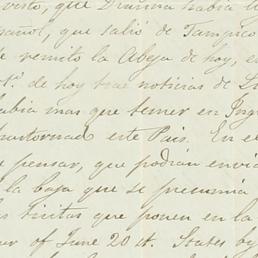 visto, que Divina habia
pañol, que salió de Tampico
te remito la Abeja de hoy, en
de hoy trae noticias de
habia mas que temer en Ing
trastornad este Pais. En e
e pensar, que podian envia
la baja que se presumia
tintas que ponen en la
of June 20 it. States by